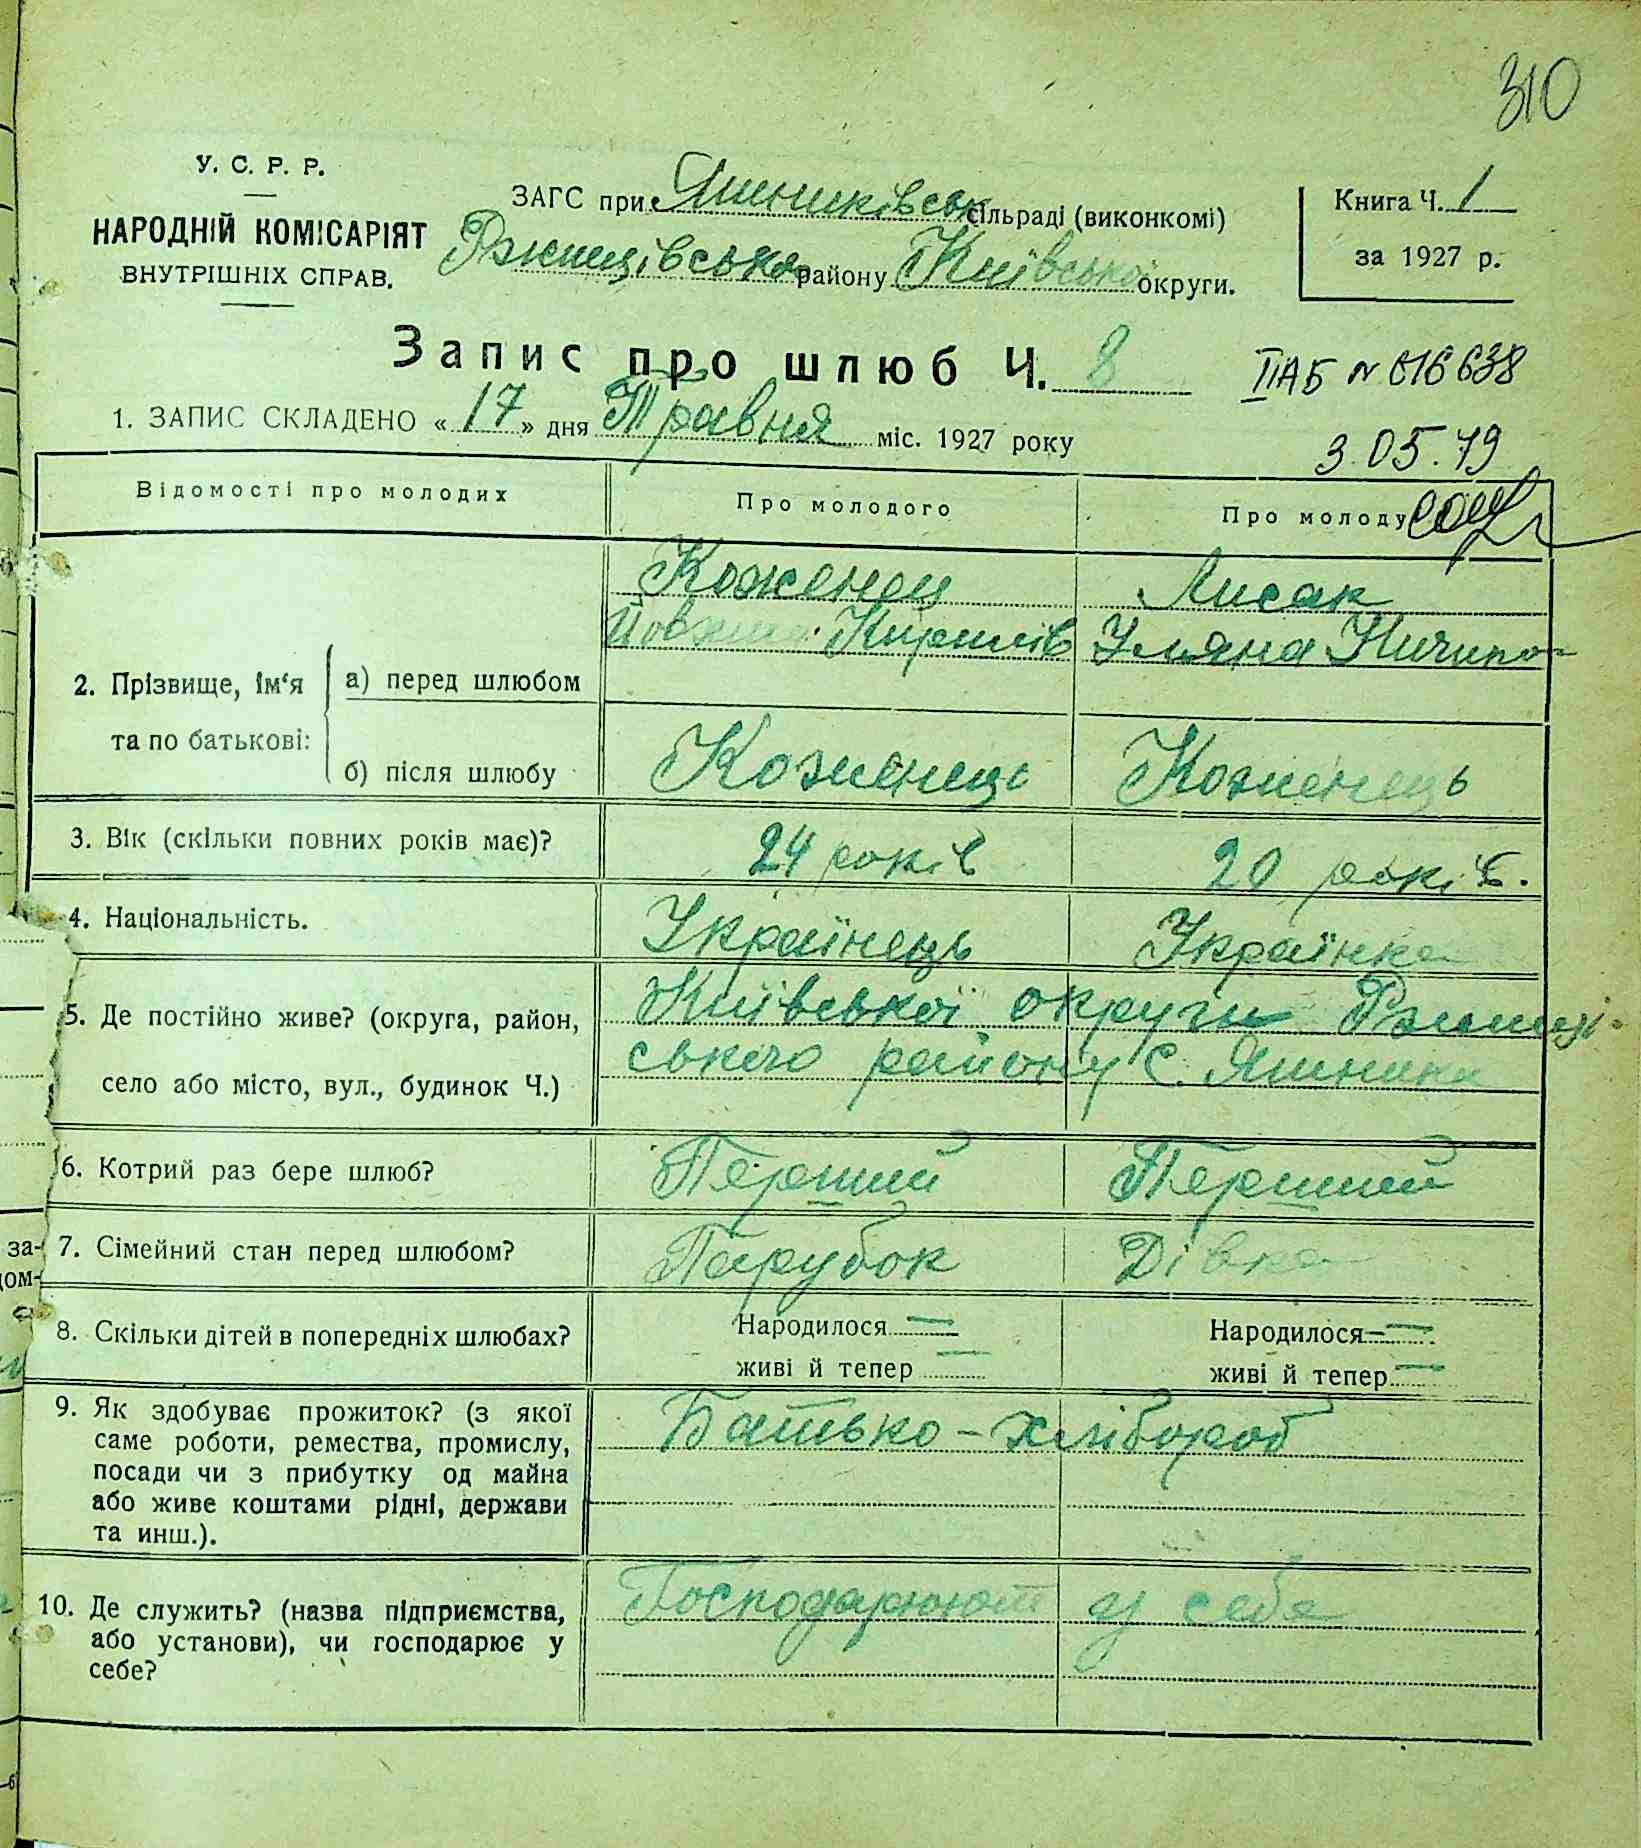 310
У. С. Р. Р.
НАРОДНІЙ КОМІСАРІЯТ
ВНУТРІШНІХ СПРАВ.
ЗАГС при Яшниківськ сільраді (виконкомі)
Ржищівського району Київської округи.
Книга Ч. 1
за 1927 р.
Запис про шлюб Ч. 8
ІІ АБ № 616638
1. ЗАПИС СКЛАДЕНО « 17 » дня Травня міс. 1927 року
3.05.79
Відомості про молодих Про молодого Про молоду
2. Прізвище, ім‘я та по батькові:
а) перед шлюбом
Коженец Лисак
Кирилів Уляна Ничипо-
б) після шлюбу Коженець Коженець
3. Вік (скільки повних років має)? 24 років 20 років.
4. Національність. Українець Українка
5. Де постійно живе? (округа, район, Київської округи Ржищі-
село або місто, вул., будинок Ч.) ського району с. Яшники
6. Котрий раз бере шлюб? Перший Перший
7. Сімейний стан перед шлюбом? Парубок Дівка
8. Скільки дітей в попередніх шлюбах? Народилося — Народилося —
живі й тепер — живі й тепер —
9. Як здобуває прожиток? (з якої Батько - хлібороб
саме роботи, ремества, промислу,
посади чи з прибутку од майна
або живе коштами рідні, держави
та инш.).
10. Де служить? (назва підприємства, Господарюют у себе
або установи), чи господарює у
себе?
за-
дом-